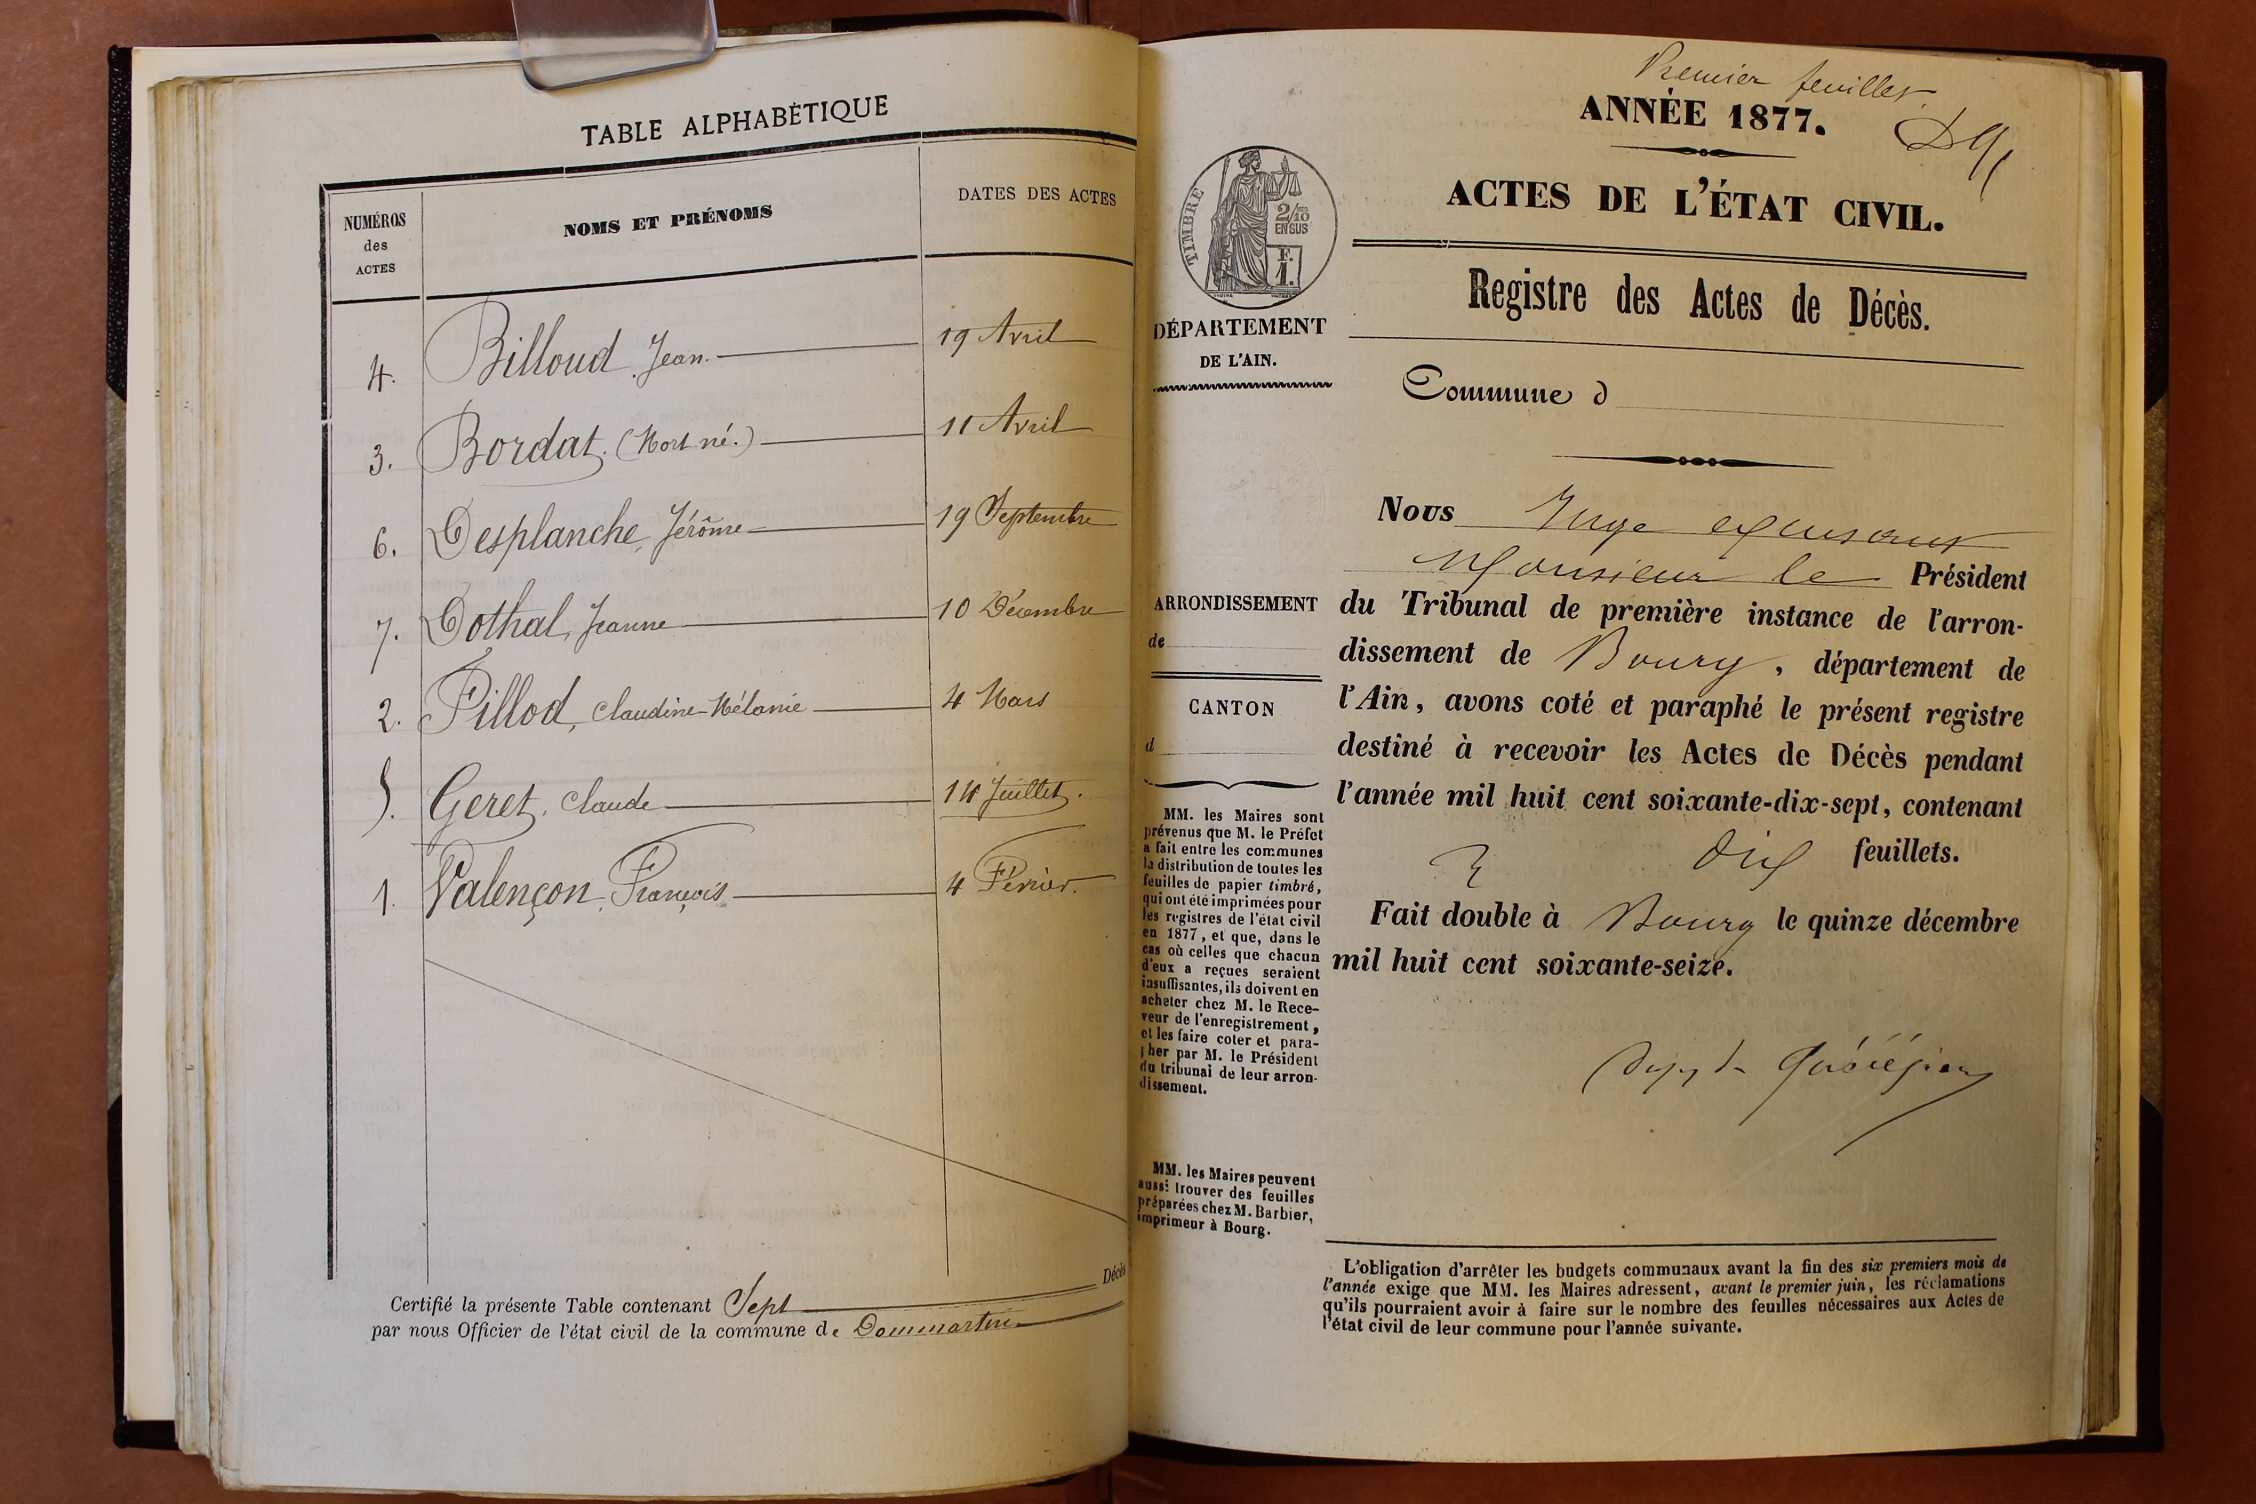 TABLE ALPHABÉTIQUE
NUMÉROS des ACTES
NOMS ET PRÉNOMS
DATES DES ACTES
4. Billoud, Jean. 19 Avril
3. Bordat. (Mort né.) 11 Avril
6. Desplanche, Jérôme 19 Septembre
7. Dothal, Jeanne 10 Décembre
2. Fillod, Claudine-Mélanie 4 Mars
5. Geret, Claude 14 Juillet.
1. Valençon, François 4 Février.
Certifié la présente Table contenant Sept Décès
par nous Officier de l'état civil de la commune de Dommartin
Premier feuillet.
ANNÉE 1877.
ACTES DE L'ÉTAT CIVIL.
Registre des Actes de Décès.
TIMBRE
2/10
EN SUS
F.
1.
DÉPARTEMENT
DE L'AIN.
Commune d
ARRONDISSEMENT
de
CANTON
d
MM. les Maires sont
prévenus que M. le Préfet
a fait entre les communes
la distribution de toutes les
feuilles de papier timbré,
qui ont été imprimées pour
les registres de l'état civil
en 1877, et que, dans le
cas où celles que chacun
d'eux a reçues seraient
insuffisantes, ils doivent en
acheter chez M. le Rece-
veur de l'enregistrement,
et les faire coter et para-
pher par M. le Président
du tribunal de leur arron-
dissement.
MM. les Maires peuvent
aussi trouver des feuilles
préparées chez M. Barbier,
imprimeur à Bourg.
Nous Juge
Monsieur le Président
du Tribunal de première instance de l'arron-
dissement de Bourg, département de
l'Ain, avons coté et paraphé le présent registre
destiné à recevoir les Actes de Décès pendant
l'année mil huit cent soixante-dix-sept, contenant
dix feuillets.
Fait double à Bourg le quinze décembre
mil huit cent soixante-seize.
L'obligation d'arrêter les budgets communaux avant la fin des six premiers mois de
l'année exige que MM. les Maires adressent, avant le premier juin, les réclamations
qu'ils pourraient avoir à faire sur le nombre des feuilles nécessaires aux Actes de
l'état civil de leur commune pour l'année suivante.